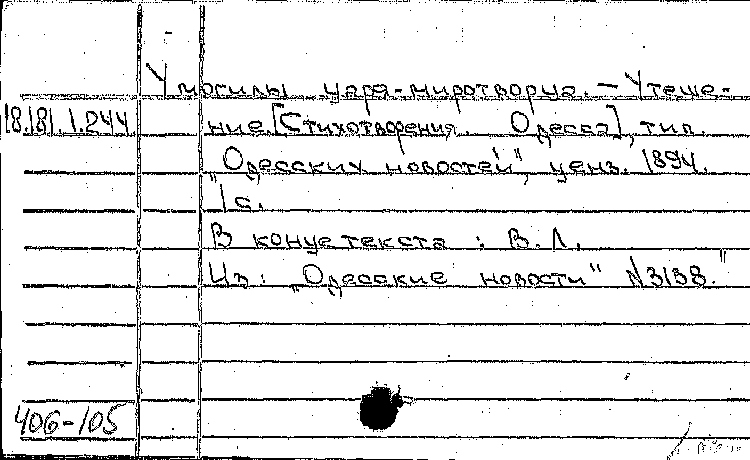 У могилы царя-миротворца. - Утеше-
18.181.1.244 ние. [Стихотворения. Одесса], тип.
"Одесских новостей", ценз. 1894.
1 с.
В конце текста: В. Л.
Из: "Одесские новости" N3138."
406-105